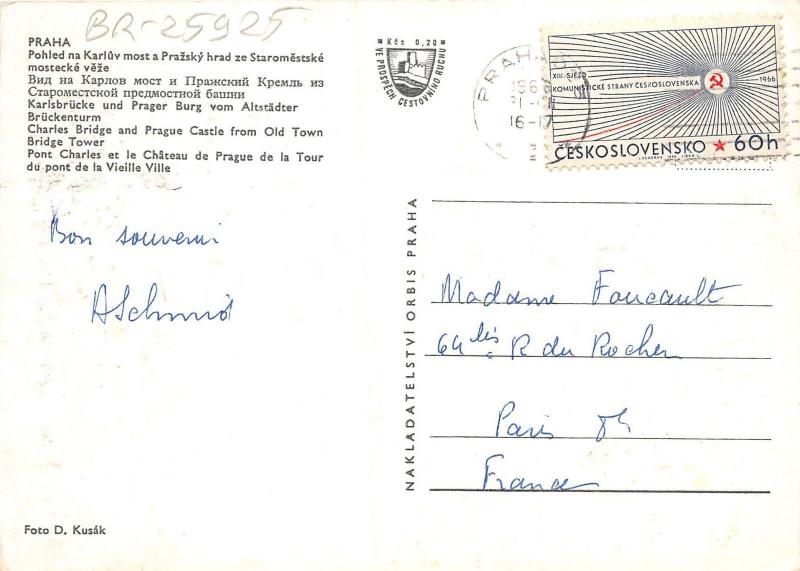 BR-25925
PRAHA
Pohled na Karlův most a Pražský hrad ze Staroměstské
mostecké věže
Вид на Карлов мост и Пражский Кремль из
Староместской предмостной башни
Karlsbrücke und Prager Burg vom Altstädter
Brückenturm
Charles Bridge and Prague Castle from Old Town
Bridge Tower
Pont Charles et le Château de Prague de la Tour
du pont de la Vieille Ville
Kčs 0,20
VE PROSPĚCH CESTOVNÍHO RUCHU
PRAHA
16-17
XIII. SJEZD
KOMUNISTICKÉ STRANY ČESKOSLOVENSKA
1966
ČESKOSLOVENSKO ★ 60h
Bon souvenir
ASchmid
NAKLADATELSTVÍ ORBIS PRAHA
Madame Foucault
64 bis R du Rocher
Paris 8h
France
Foto D. Kusák